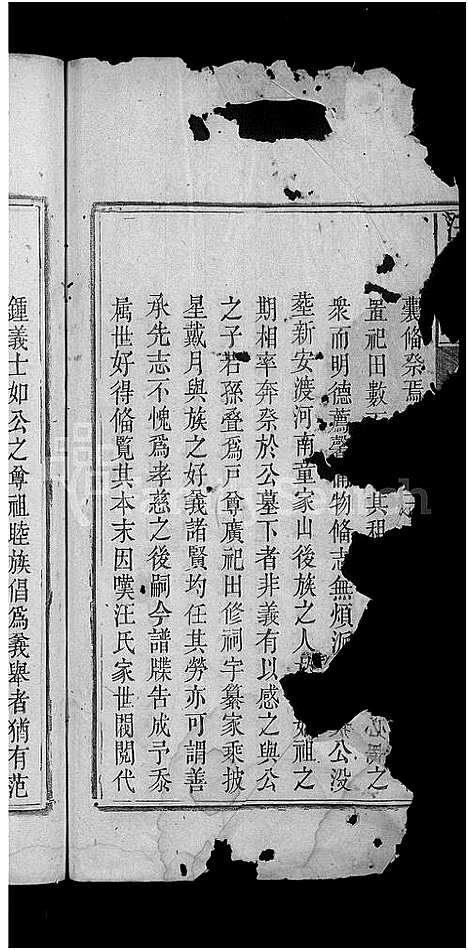 囊修祭焉
置祀田數 其祖 之
衆而明德薦馨 物俻志無煩派 公没
塟新安渡河南童家山後族之人 始祖之
期相率奔祭於公墓下者非義有以感之與公
之子若孫叠爲戸尊廣祀田修祠宇纂家乘披
星戴月與族之好義諸賢均任其勞亦可謂善
承先志不愧爲孝慈之後嗣今譜牒告成予忝
属世好得俻覧其本末因嘆汪氏家世閥閲代
鍾義士如公之尊祖睦族倡爲義舉者猶有范